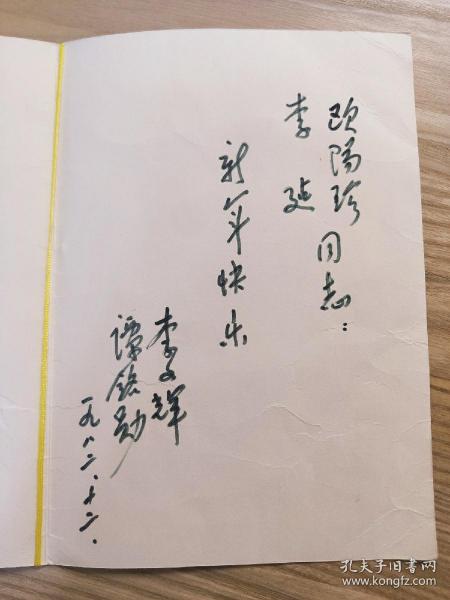 欧阳珍同志：
李廷
新年快乐
李文辉
谭铭勋
一九八二.十二.
孔夫子旧书网
www.kongfz.com